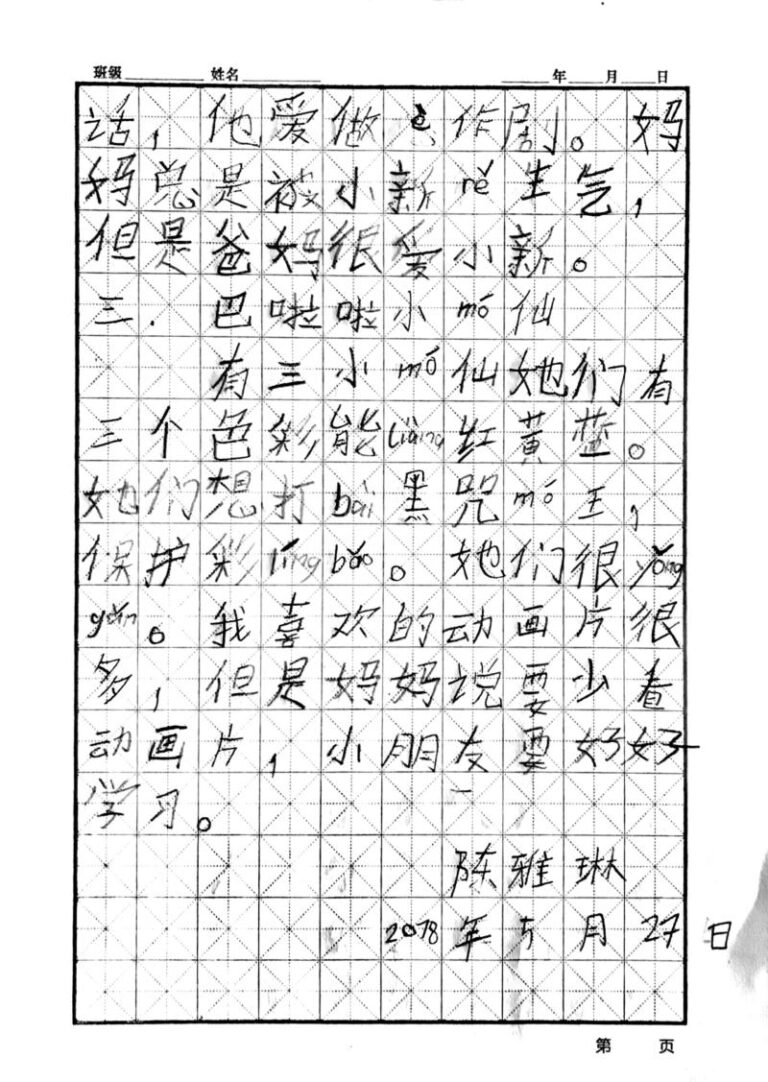 班级 姓名 年 月 日
话，他爱做è作剧。妈
妈总是被小新rě生气，
但是爸妈很爱小新。
三．巴啦啦小mó仙
有三小mó仙她们有
三个色彩能liàng红黄蓝。
她们想打bài黑咒mó王，
保护彩líng bǎo。她们很yǒng
gǎn。我喜欢的动画片很
多，但是妈妈说要少看
动画片，小朋友要好好
学习。
陈雅琳
2018年5月27日
第 页